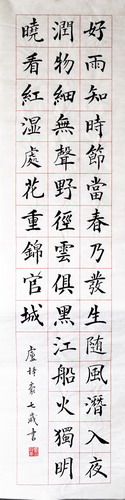 好雨知時節當春乃發生随風潛入夜
潤物細無聲野徑雲俱黑江船火獨明
曉看紅湿處花重錦官城
盧梓豪七歲書